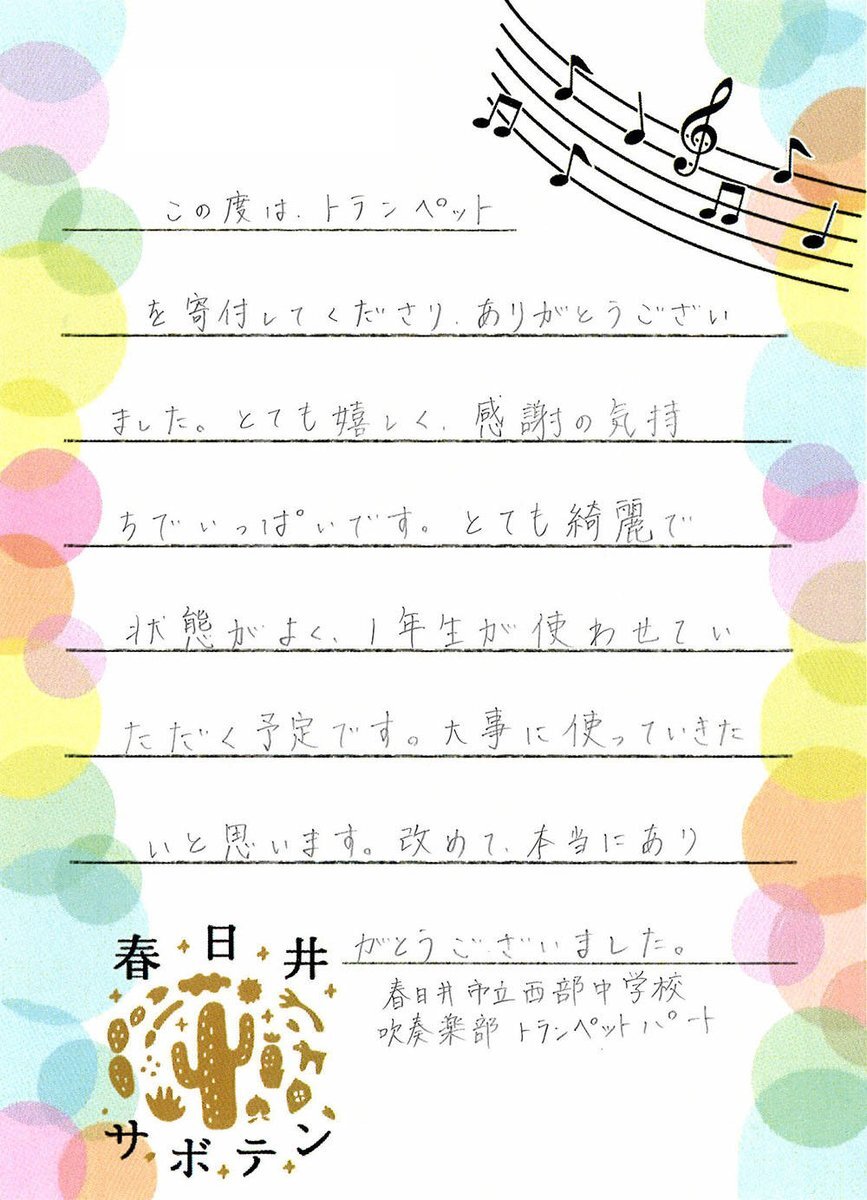 この度は、トランペット
を寄付してくださり、ありがとうござい
ました。とても嬉しく、感謝の気持
ちでいっぱいです。とても綺麗で
状態がよく、1年生が使わせてい
ただく予定です。大事に使っていきた
いと思います。改めて、本当にあり
がとうございました。
春日井市立西部中学校
吹奏楽部 トランペットパート
春日井
サボテン